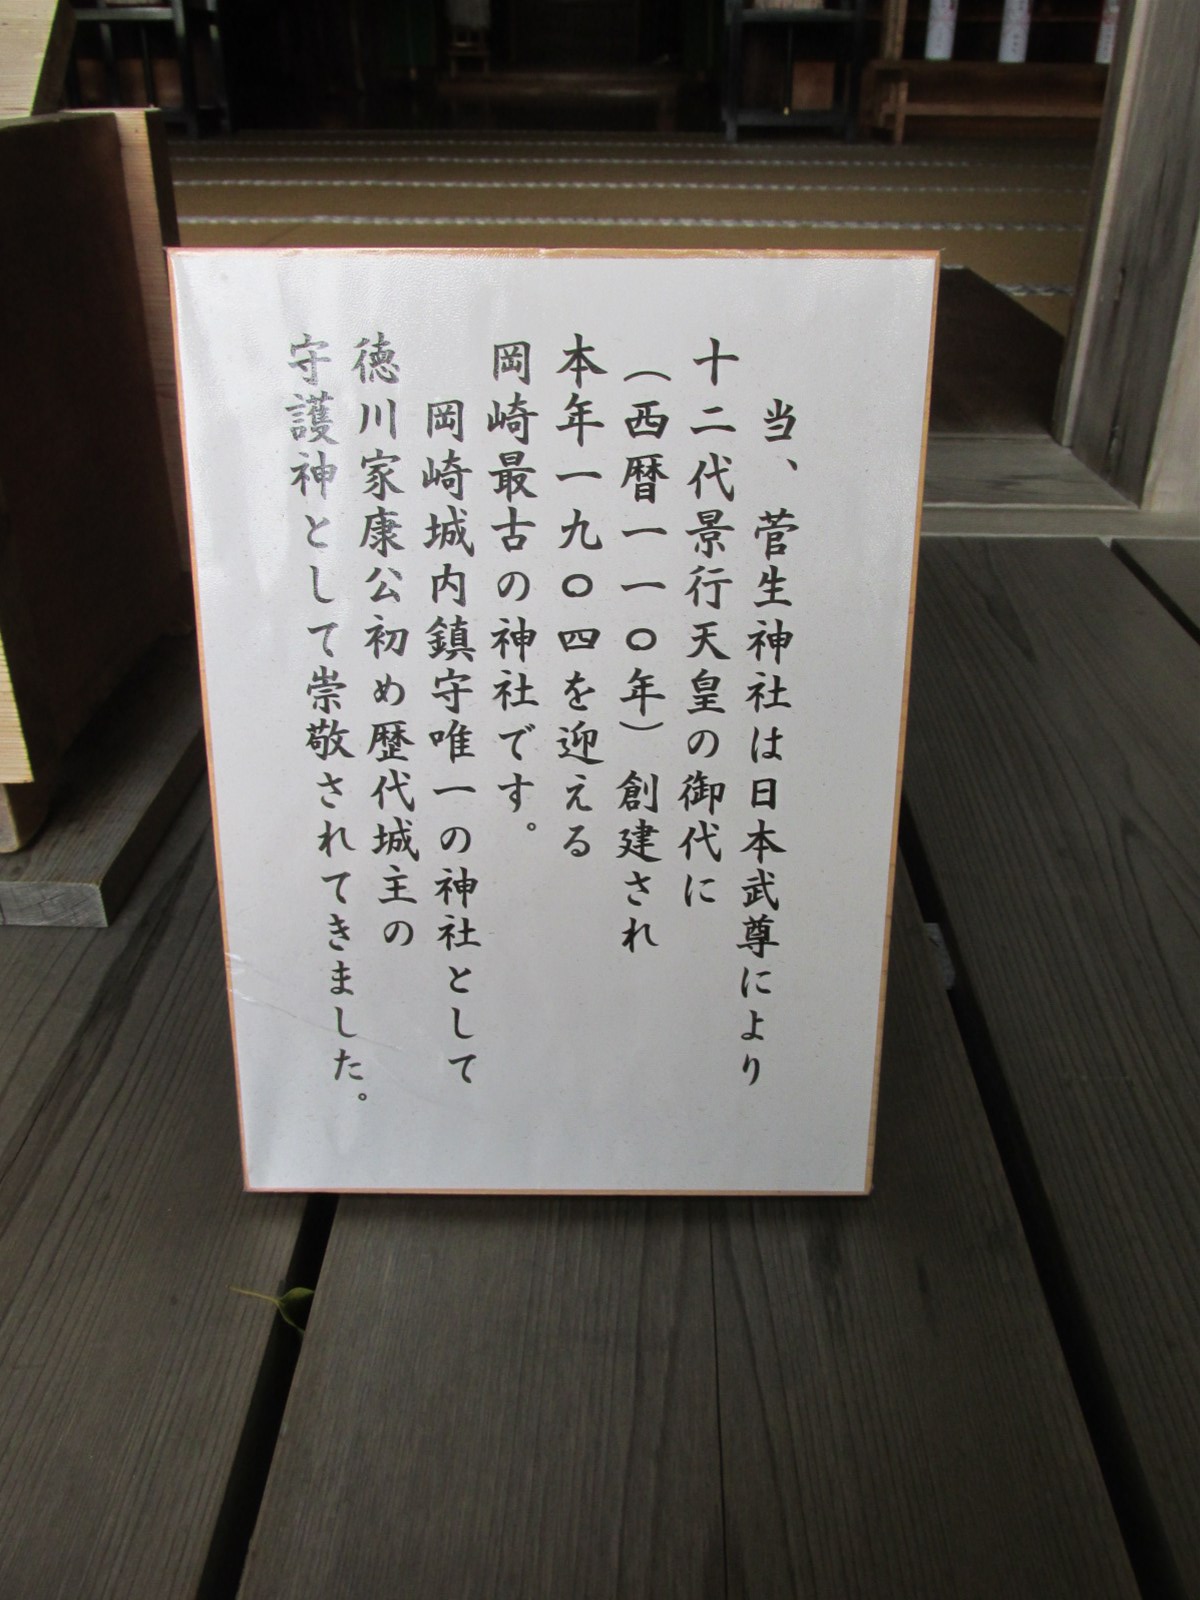 当、菅生神社は日本武尊により
十二代景行天皇の御代に
（西暦一一〇年）創建され
本年一九〇四を迎える
岡崎最古の神社です。
岡崎城内鎮守唯一の神社として
徳川家康公初め歴代城主の
守護神として崇敬されてきました。